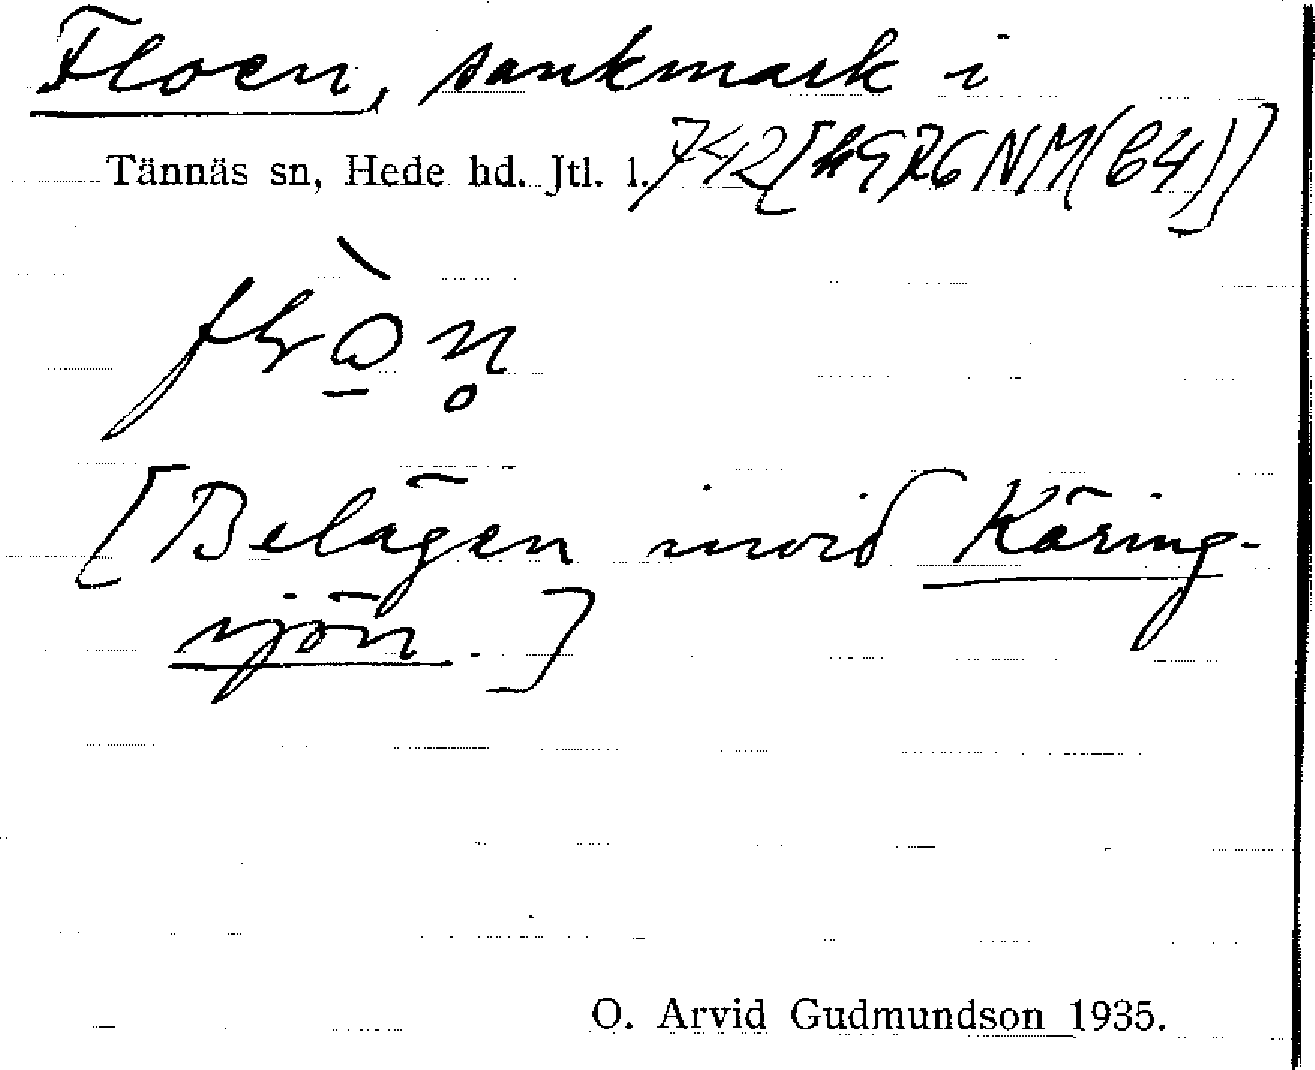 Floen, sankmark i
Tännäs sn, Hede hd. Jtl. l. 742 [NM(64)]
[Belägen invid Käring-
sjön.]
O. Arvid Gudmundson 1935.